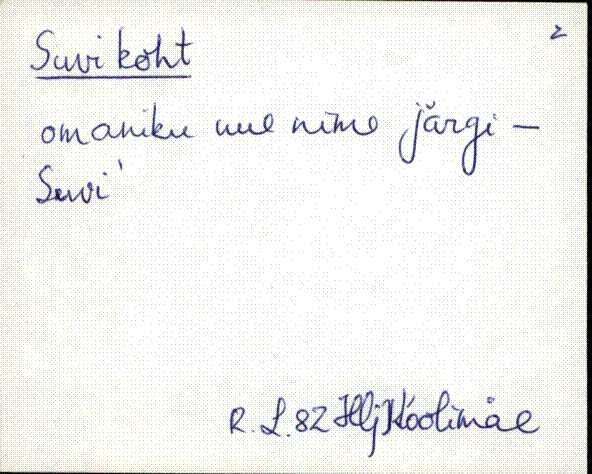 2
Suvi koht
omaniku uue nime järgi –
Suvi'
R. L. 82 Hlj Kóolimäe